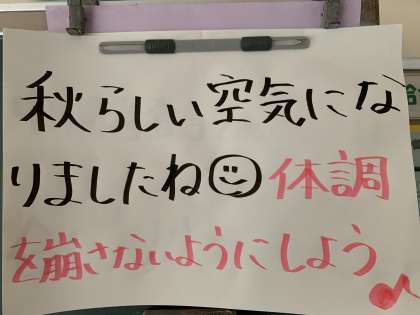 秋らしい空気にな
りましたね☺体調
を崩さないようにしよう♪